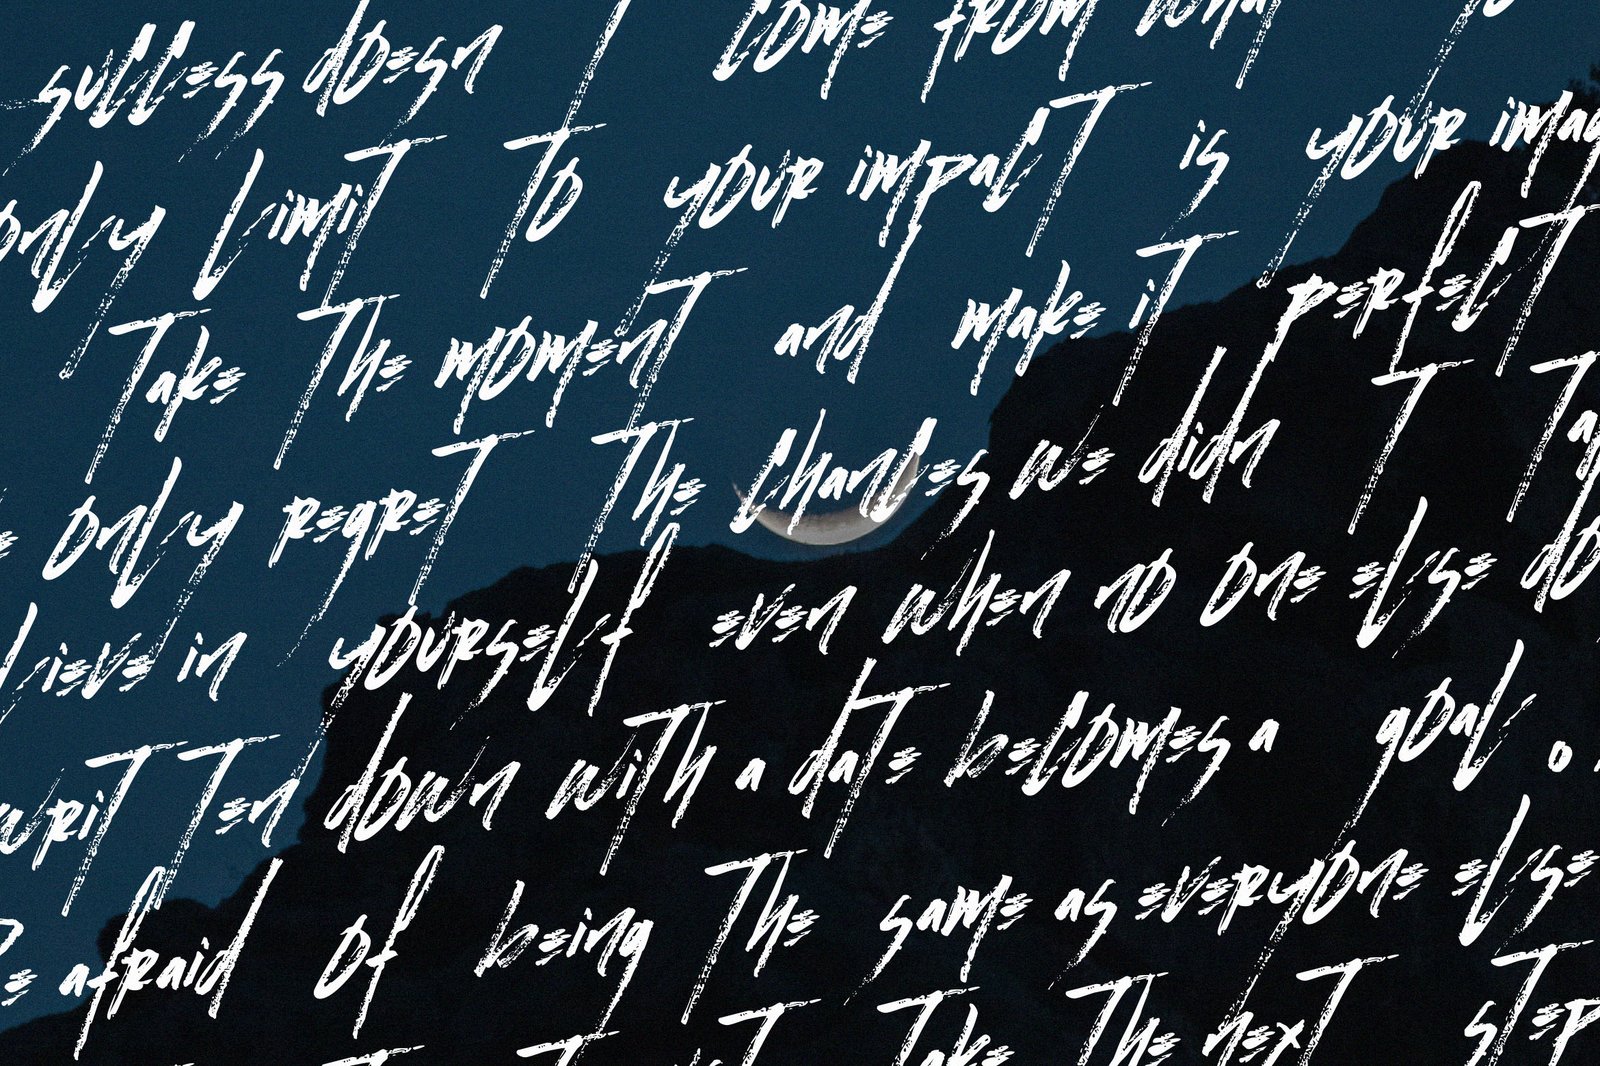 success doesn t come from what yo
only limit to your impact is your imag
Take The moment and make it perfect
e only regret The chances we didn t Tak
lieve in yourself even when no one else do
writ Ten down with a date becomes a goal. 
e afraid of being The same as everyone else
Take The next step